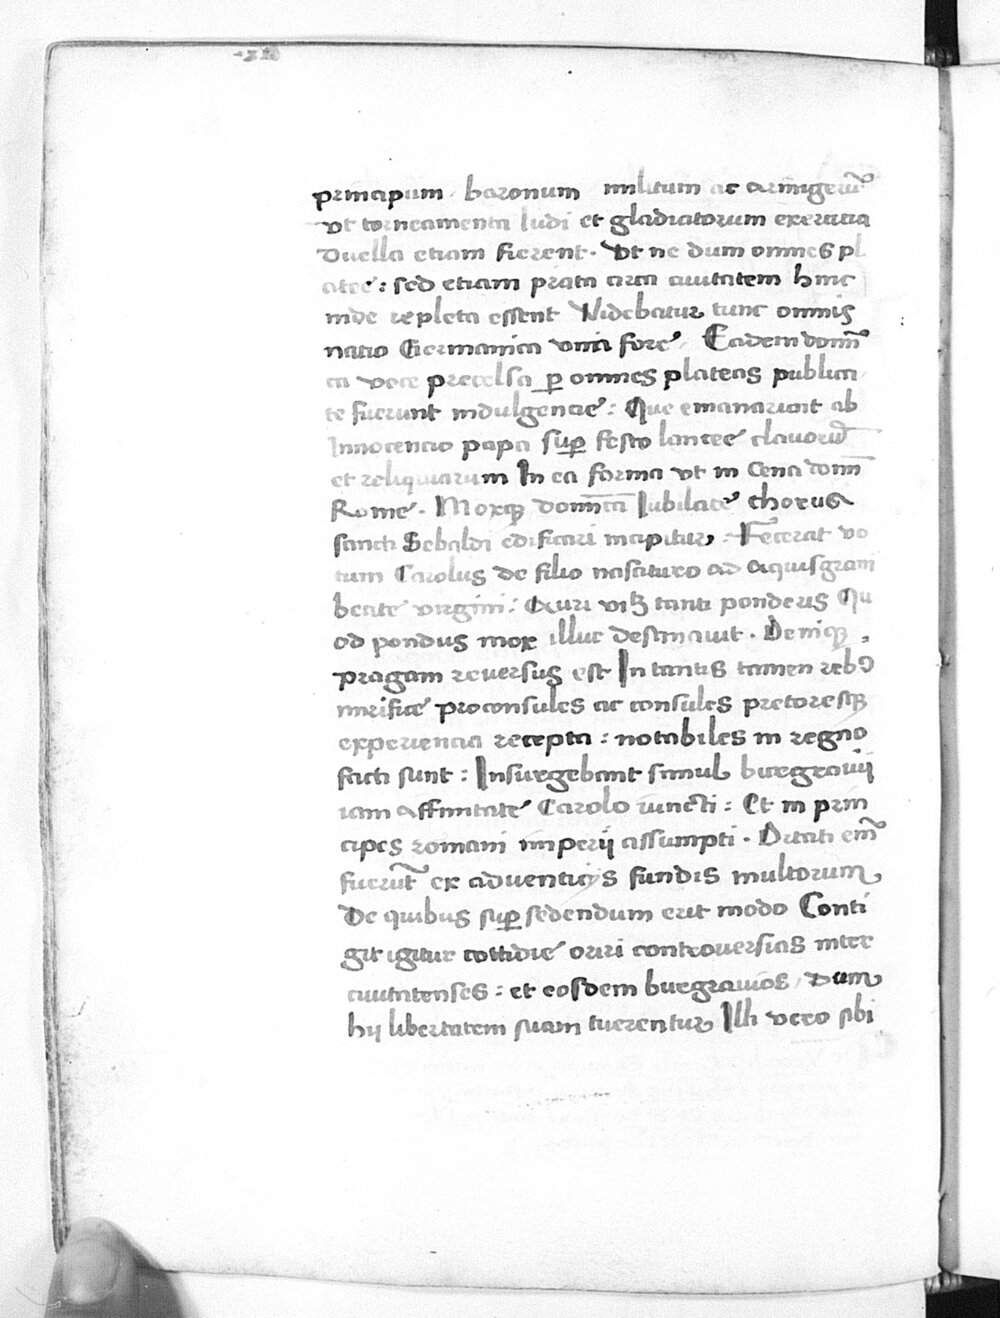 principum baronum militum ac armigerū
vt torneamenta ludi et gladiatorum exercitia
Duella etiam fierent. Vt ne dum omnes pl
atee: sed etiam prata circa ciuitatem hinc
inde repleta essent Videbatur tunc omnis
natio Germanica vnita fore. Eadem domī
ca voce precelsa ꝑ omnes plateas publica
te fuerunt indulgencie: Que emanarunt ab
Innocencio papa suꝑ festo lancee clauorū
et reliquiarum In ea forma vt in Cena domī
Rome. Moxqꝫ domīca Iubilate chorus
sancti Sebaldi edificari incipitur. Fecerat vo
tum Carolus de filio nascituro ad Aquisgram
beate virgini: Auri vitꝫ tanti ponderis Qu
od pondus mox illuc destinauit. Deniqꝫ,
pragam reuersus est In tantis tamen rebꝰ
mirifice proconsules ac consules pretoresqꝫ
experiencia recepta: notabiles in regno
facti sunt: Insurgebant simul burgrauij
iam affinitate Carolo iuncti: Et in prin
cipes romani imperij assumpti. Ditati em̄
fuerūt ex aduenticijs fundis multorum
De quibus suꝑ sedendum erit modo Conti
git igitur cottidie oriri controuersias inter
ciuitatenses: et eosdem burgrauios, Dum
hij libertatem suam tuerentur Illi vero sibi